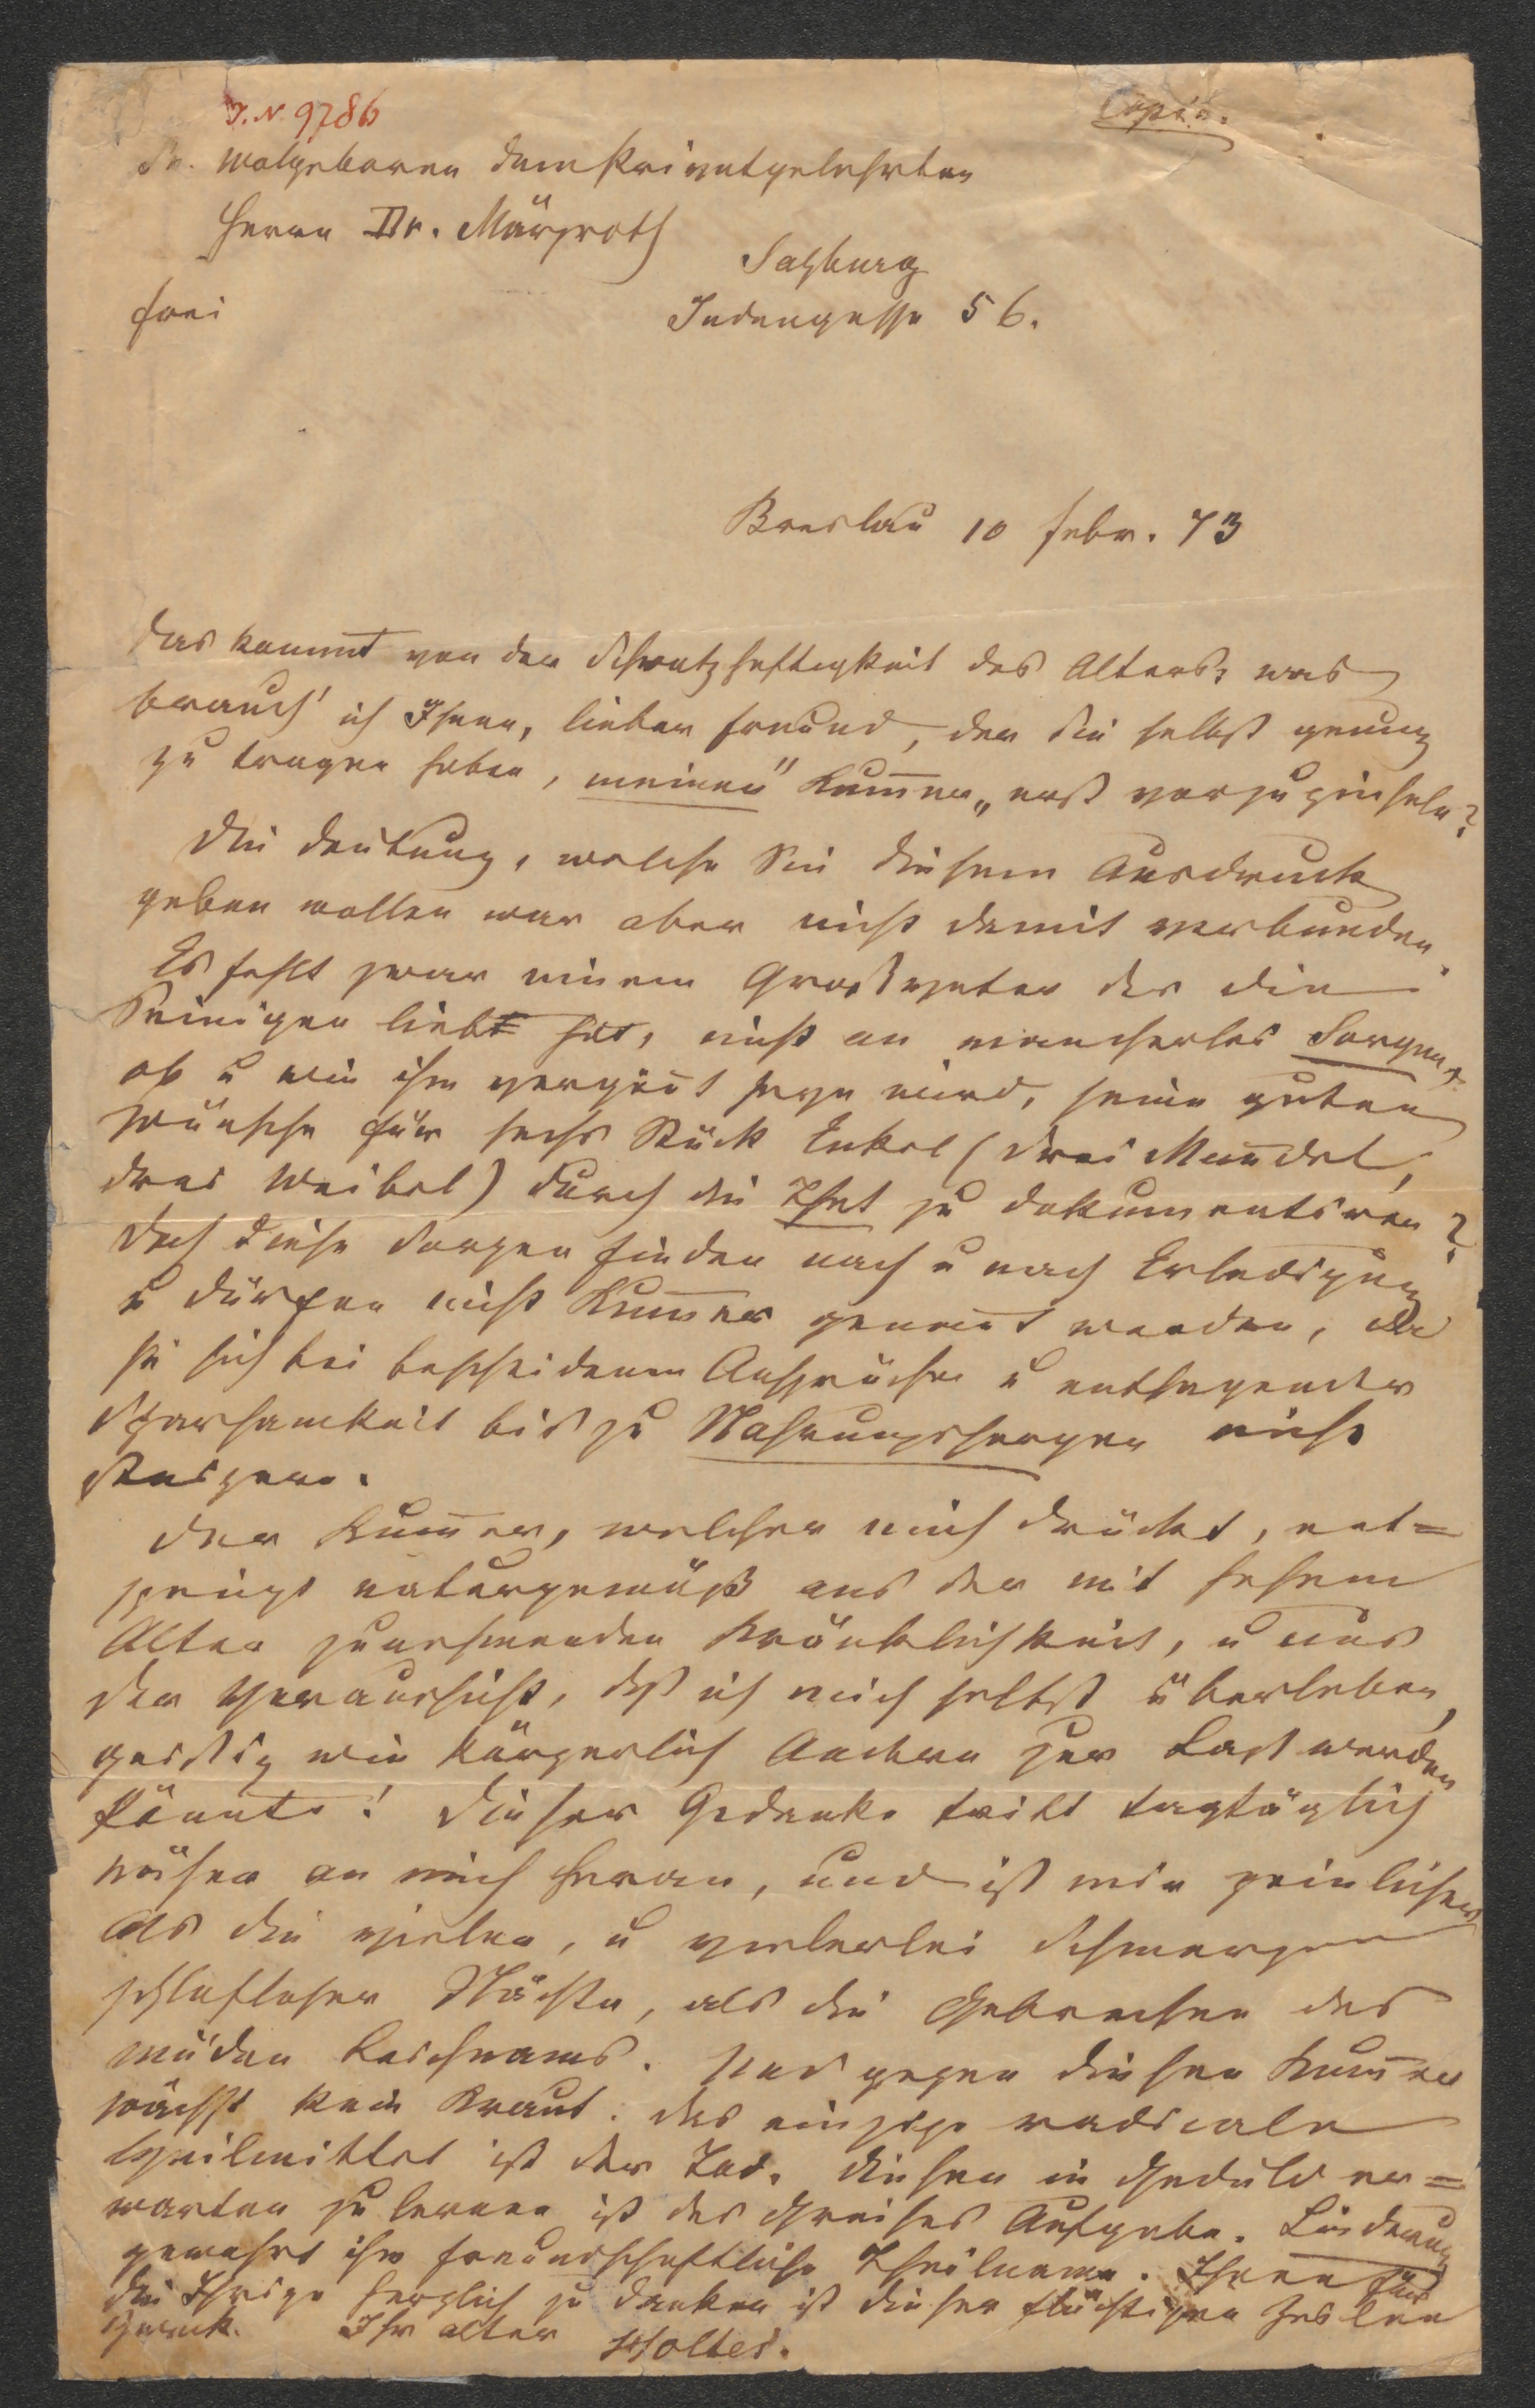 I.N. 9786
Copie.
Sr. Wolgeboren dem Privatgelehrten
Herrn Dr. Märzroth
Salzburg
frei
Judengasse 56.
Breslau 10 Febr. 73
Das kommt von der Schwatzhaftigkeit des Alters; was
brauch' ich Ihnen, lieber Freund, der Sie selbst genug
zu tragen haben, meinen" Kum̅er „ erst vorzupinseln?
Die Deutung, welche Sie diesem Ausdruck
geben wollen war aber nicht damit verbunden.
Es fehlt zwar einem Großvater der die
Seinigen liebt hat, nicht an mancherlei Sorgen,
ob u wie ihm vergön̅t seyn wird, seine guten
Wünsche für sechs Stück Enkel (drei Man̅del,
drei Weibel) durch die That zu dokumentiren?
Doch diese Sorgen finden nach u nach Erledigung
u dürfen nicht Kum̅er genan̅t werden, da
sie sich bei bescheidenen Ansprüchen u entsagender
Sparsamkeit bis zu Nahrungssorgen nicht
steigern.
Der Kum̅er, welcher mich drückt, ent=
springt naturgemäß aus der mit hohem
Alter zunehmenden Kränklichkeit, u aus
der Voraussicht, daß ich mich selbst überleben,
geistig wie körperlich Andern zur Last werden
könnte! Dieser Gedanke tritt tagtäglich
näher an mich heran, und ist mir peinlicher
als die vielen, u vielerlei Schmerzen
schlafloser Nächte, als die Gebrechen des
müden Leichnams. Und gegen diesen Kum̅er
wächst kein Kraut. Das einzige radicale
Heilmittel ist der Tod. Diesen in Geduld er=
warten zu lernen ist des Greises Aufgabe. Linderung
gewährt ihm freundschaftliche Theilname. Ihnen für
die Ihrige herzlich zu danken ist dieser flüchtigen Zeilen
Zweck. Ihr alter Holtei.